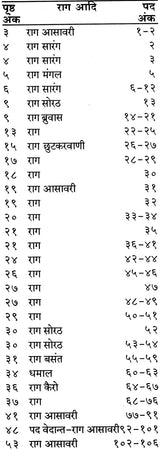 पृष्ठ राग आदि पद
अंक अंक
३ राग आसावरी १-२
४ राग सारंग २
४ राग सारंग ३
५ राग मंगल ५
६ राग सारंग ६-१२
९ राग सोरठ १३
९ राग ब्रुवास १४-२१
१३ राग २२-२५
१५ राग छुटकरवाणी २६-२७
१७ राग २८-२९
१८ राग ३०
१९ राग आसावरी ३१
१९ राग ३२
२० राग ३३-३४
२१ राग ३५
२१ राग ३६-४१
२४ राग ४२-४४
२६ राग ४५-४६
२७ राग ४७
२७ राग ४८-४९
२९ राग ५०-५१
३० राग सोरठ ५२
३० राग सोरठ ५३-५४
३१ राग बसंत ५५-५९
३४ धमाल ६०-६३
३६ राग कैरो ६४-६७
३७ राग ६८-७६
४१ राग आसावरी ७७-९१
४८ पद वेदान्त-राग आसावरी ९२-१०१
५३ राग आसावरी १०२-१०६